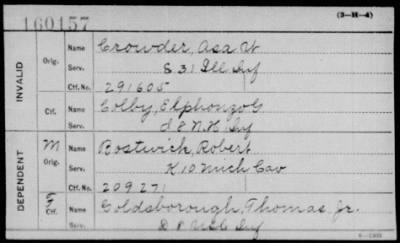 160157
(3-H-4)
INVALID
Orig. Name Crowder, Asa W
Serv. E 31 Ill Inf
Ctf. No. 291605
Ctf. Name Colby, Elphonzo G
Serv. D 8 N.H. Inf
DEPENDENT
M Orig. Name Bostwick, Robert
Serv. K 10 Mich Cav
Ctf. No. 209271
F Ctf. Name Goldsborough, Thomas, Jr.
Serv. Inf